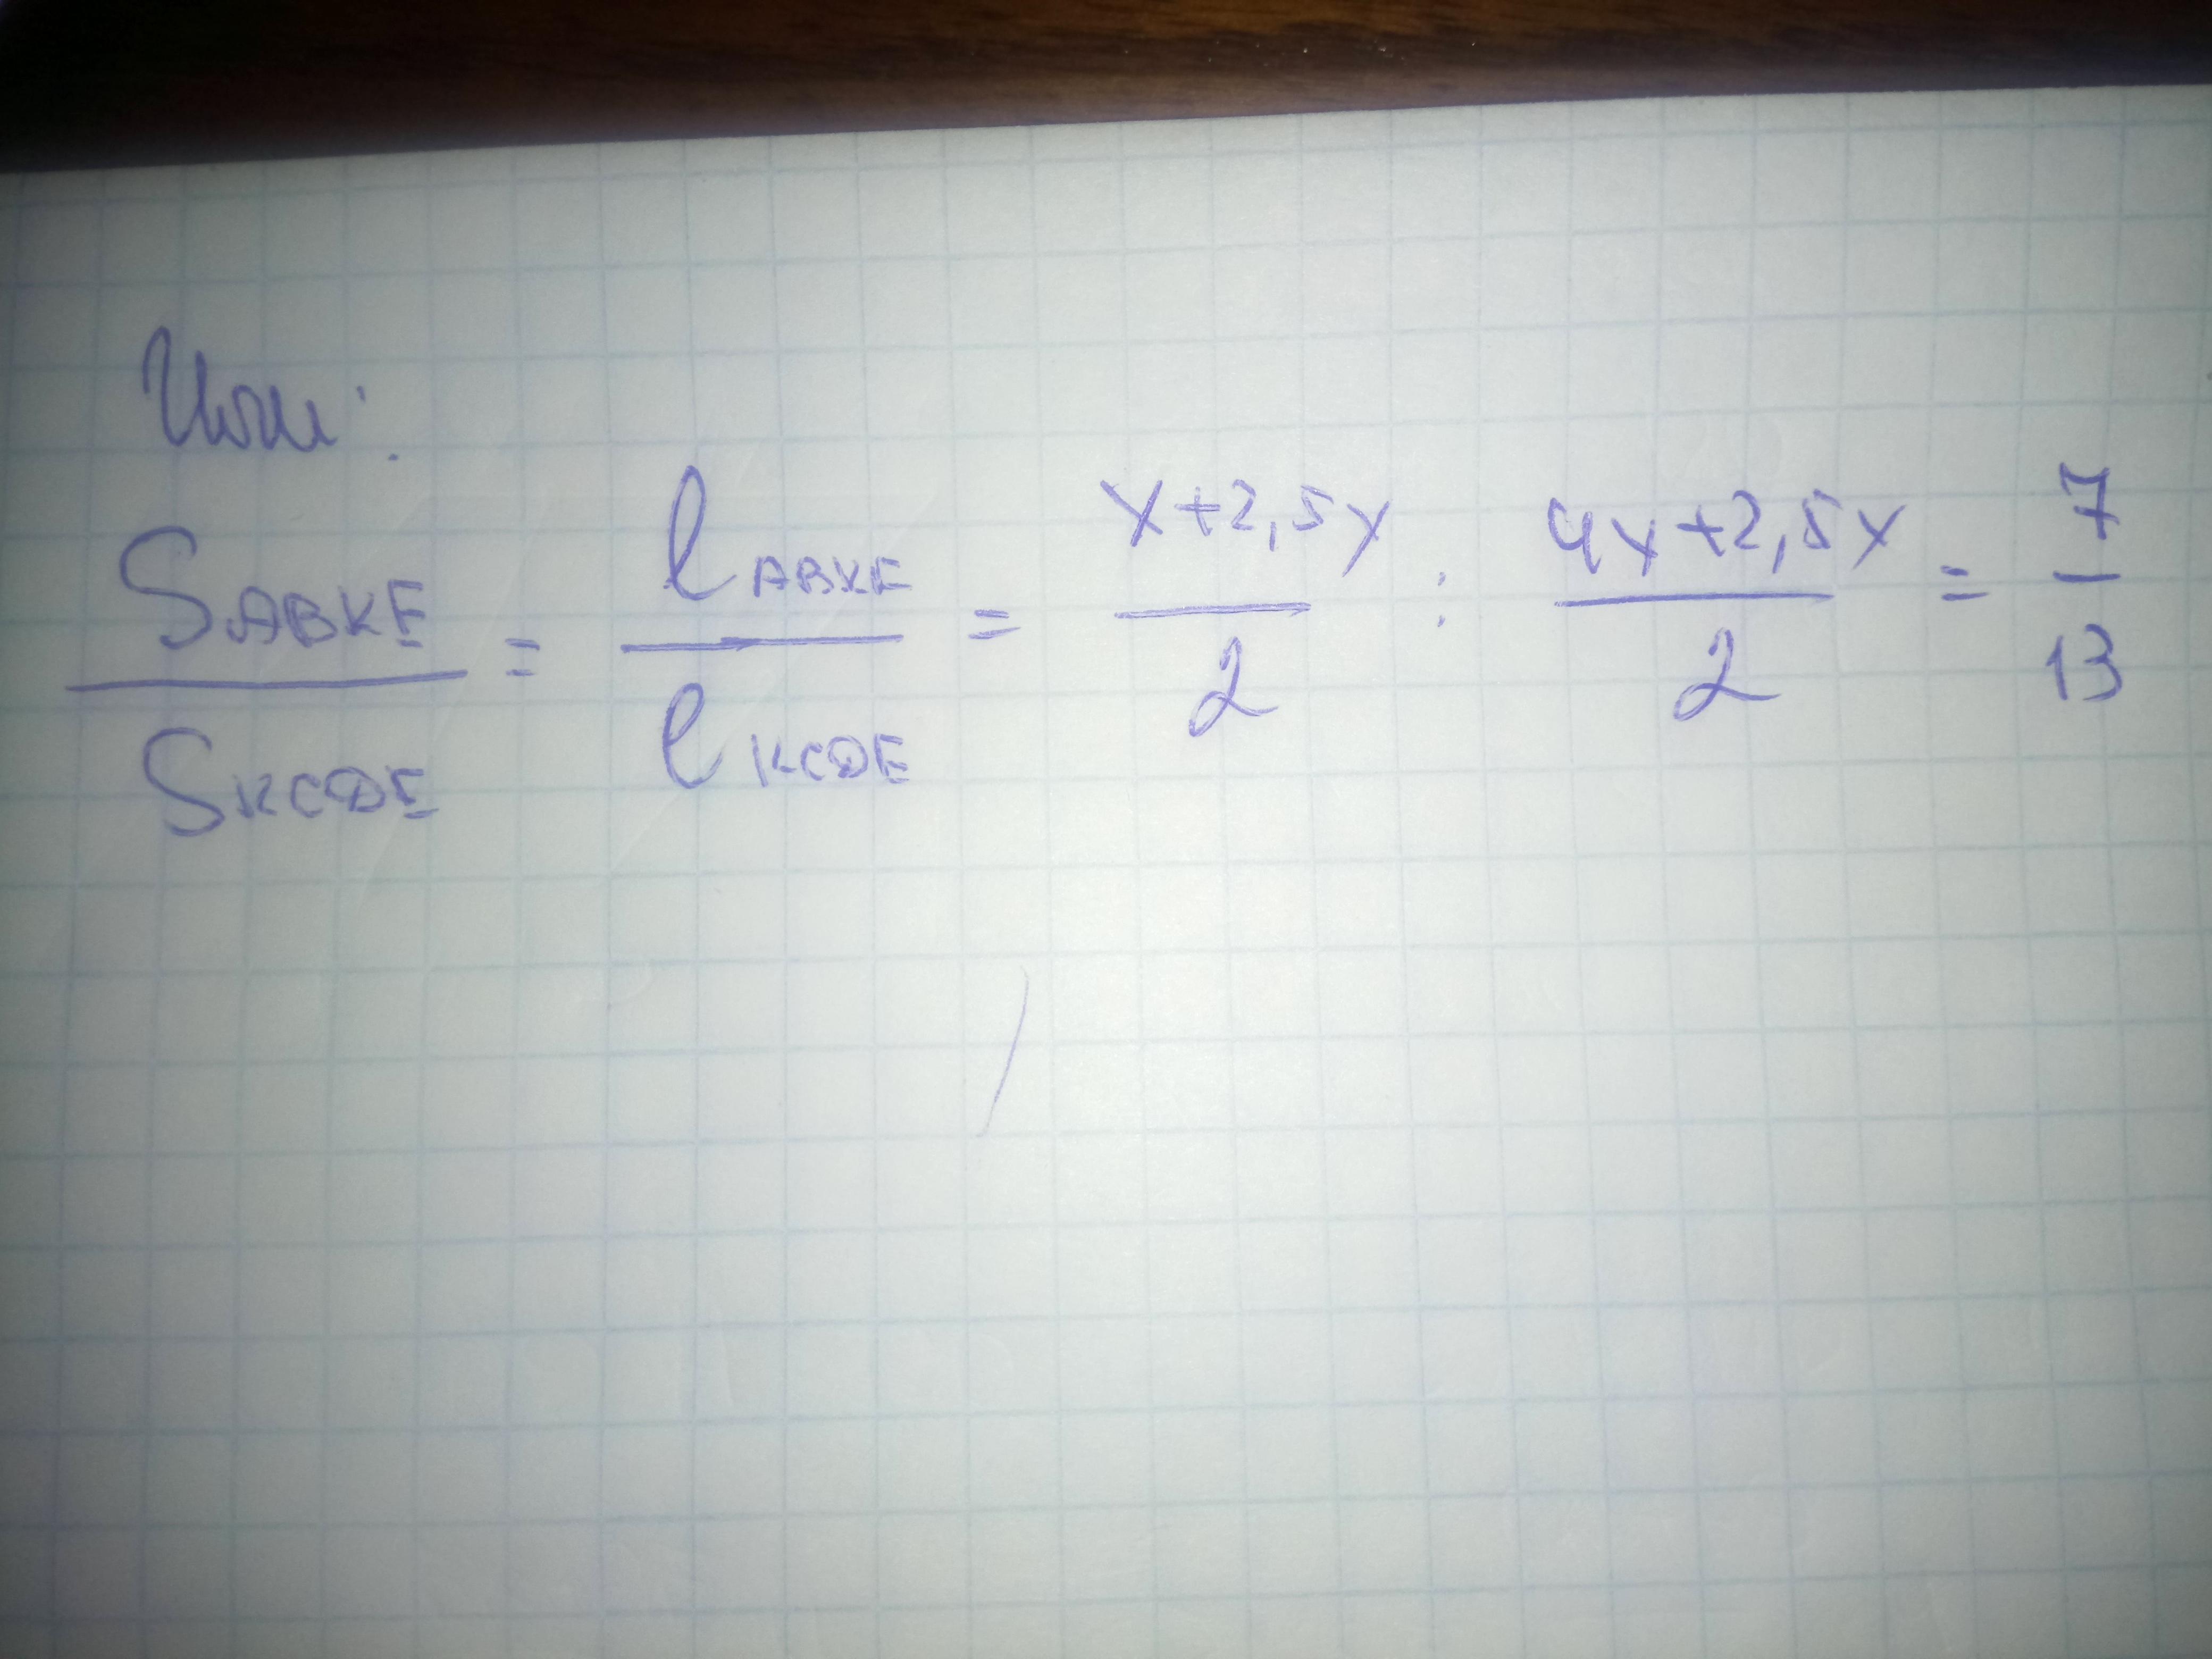 Итог:
S_ABKE / S_KCDE = l_ABKE / l_KCDE = x+2,5x / 2 : 4x+2,5x / 2 = 7 / 13